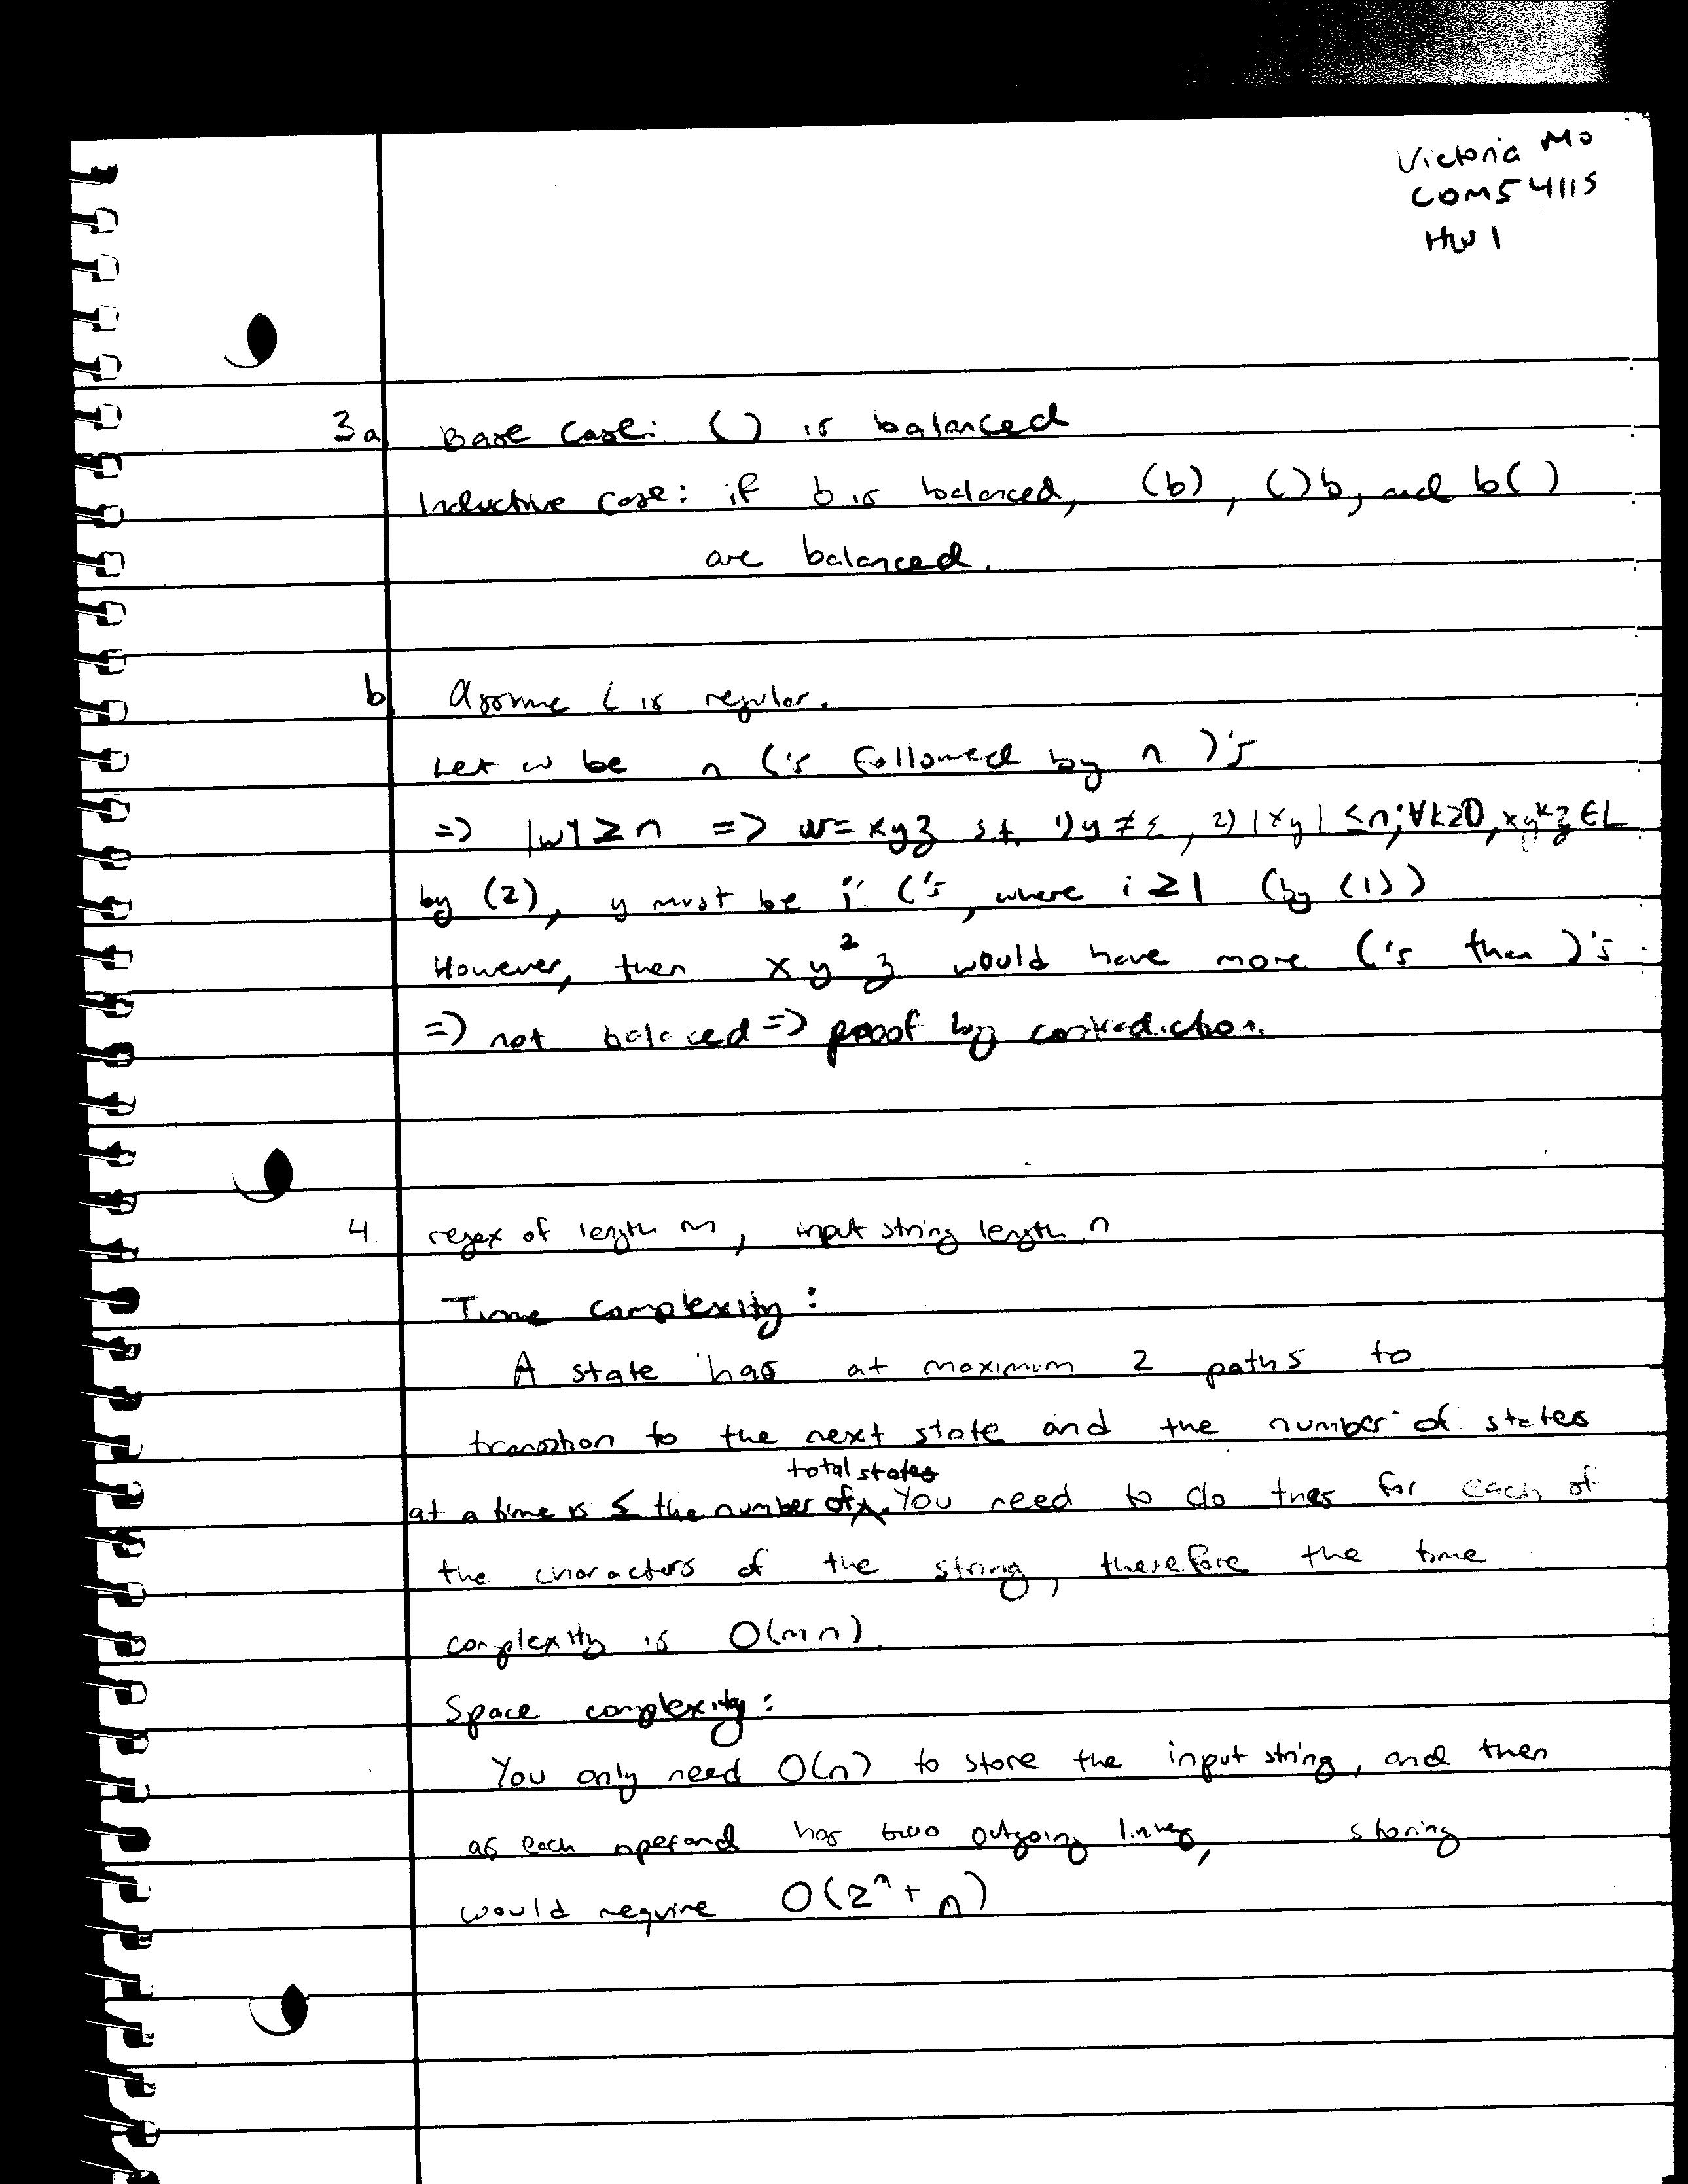 Victoria Mo
COMS 4115
HW 1
3a Base Case: () is balanced
Inductive Case: if b is balanced, (b), ()b, and b()
are balanced.
b Assume L is regular.
Let w be n ('s followed by n )'s
=> |w| ≥ n => w = xyz s.t. 1) y ≠ ε, 2) |xy| ≤ n; ∀k≥0, xy^kz ∈ L
by (2), y must be i ('s, where i ≥ 1 (by (1))
However, then xy²z would have more ('s than )'s
=> not balaced => proof by contradiction.
4. regex of length m, input string length n
Time complexity:
A state has at maximum 2 paths to
transition to the next state and the number of states
total states
at a time is ≤ the number of ^. You need to do thes for each of
the characters of the string, therefore the time
complexity is O(mn).
Space complexity:
You only need O(n) to store the input string, and then
as each operand has two outgoing lines, storing
would require O(2^n + n)